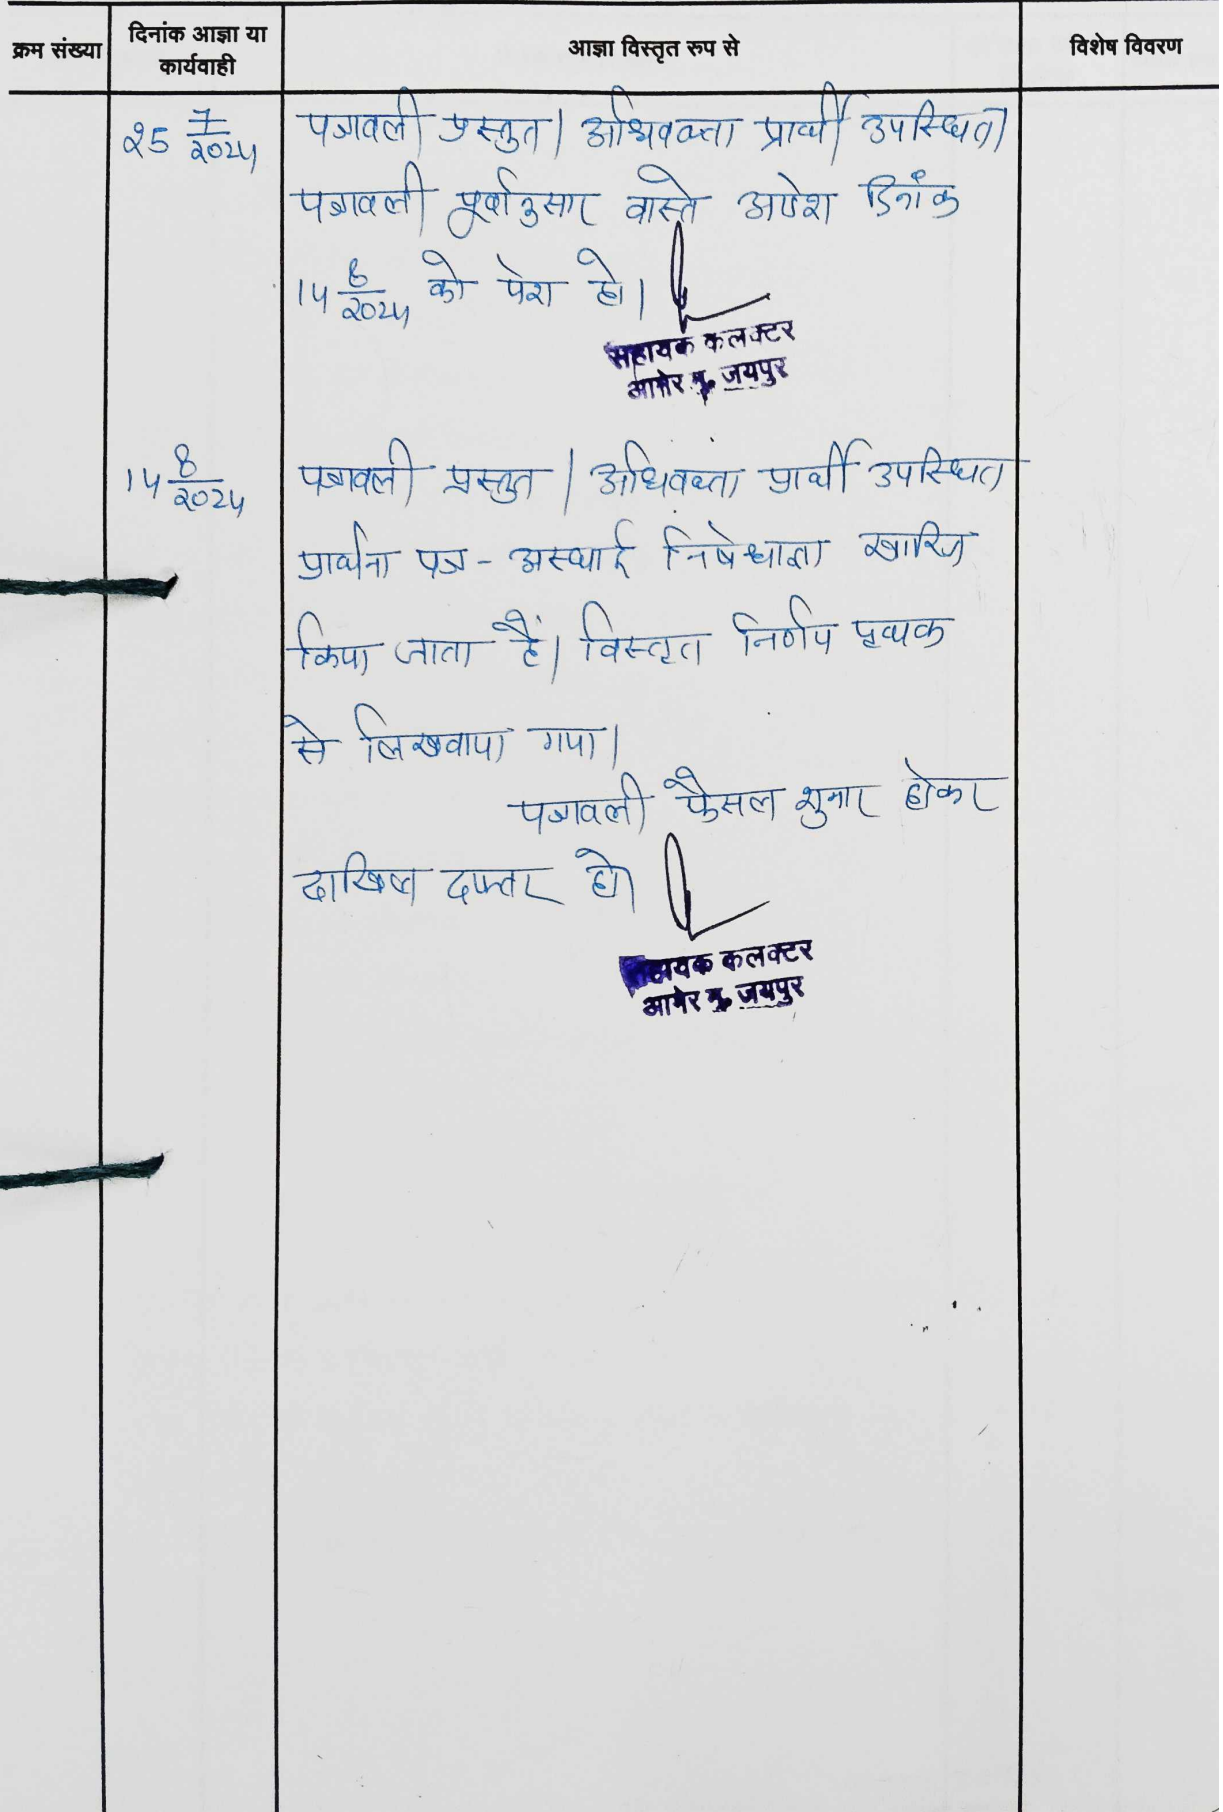 क्रम संख्या
दिनांक आज्ञा या
कार्यवाही
आज्ञा विस्तृत रुप से
विशेष विवरण
25 7/2024
पत्रावली प्रस्तुत। अधिवक्ता प्रार्थी उपस्थित।
पत्रावली पूर्वानुसार वास्ते आदेश दिनांक
14 8/2024 को पेश हो।
सहायक कलक्टर
आमेर मु. जयपुर
14 8/2024
पत्रावली प्रस्तुत। अधिवक्ता प्रार्थी उपस्थित
प्रार्थना पत्र - अस्थाई निषेधाज्ञा खारिज
किया जाता हैं। विस्तृत निर्णय पृथक
से लिखवाया गया।
पत्रावली फैसल शुमार होकर
दाखिल दफ्तर हो।
सहायक कलक्टर
आमेर मु. जयपुर